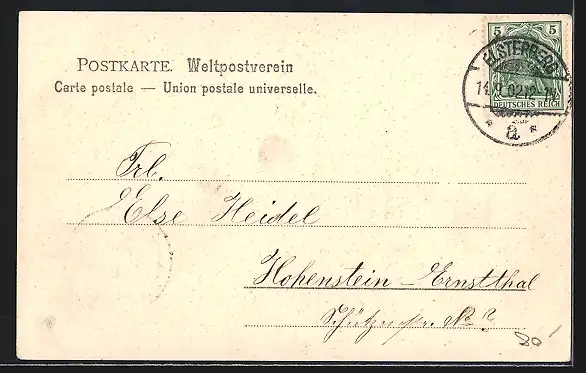 POSTKARTE. Weltpostverein
Carte postale — Union postale universelle.
5 5
DEUTSCHES REICH
ELSTERBERG
14.9.02.12-1N.
* a *
Frl.
Else Heidel
Hohenstein-Ernstthal
Schützenstr. No ?
80